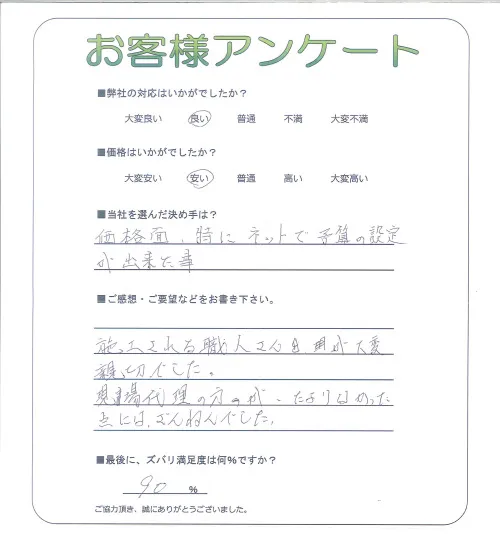 お客様アンケート
■弊社の対応はいかがでしたか？
大変良い 良い 普通 不満 大変不満
■価格はいかがでしたか？
大変安い 安い 普通 高い 大変高い
■当社を選んだ決め手は？
価格面、特にネットで予算の設定
が出来た事
■ご感想・ご要望などをお書き下さい。
施工される職人さん が大変
親切でした。
現場代理の方 が、たよりなかった
点には、ざんねんでした。
■最後に、ズバリ満足度は何％ですか？
90 ％
ご協力頂き、誠にありがとうございました。